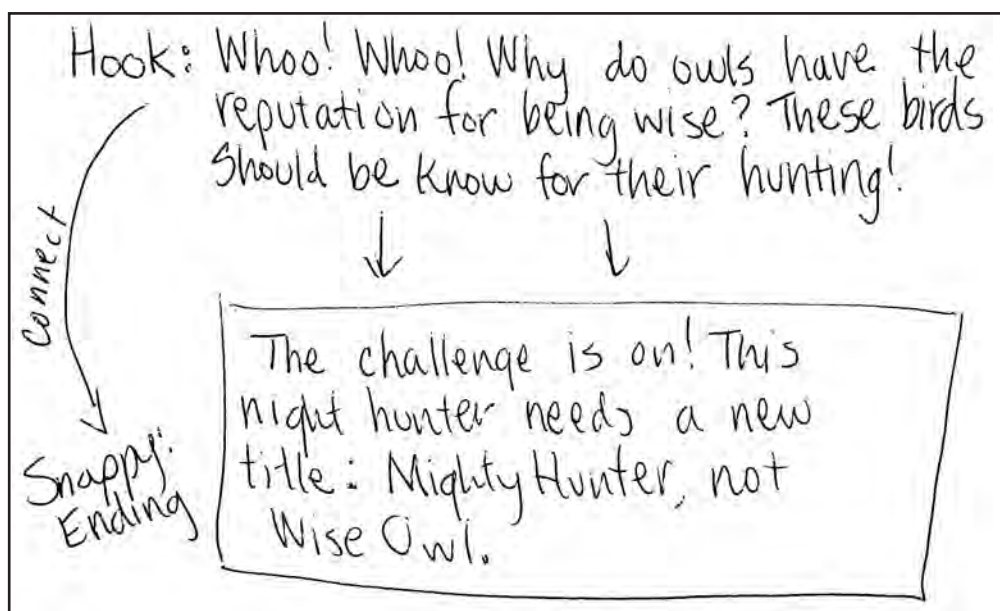 Hook: Whoo! Whoo! Why do owls have the
reputation for being wise? These birds
Should be know for their hunting!
Connect
The challenge is on! This
night hunter needs a new
title: Mighty Hunter, not
Wise Owl.
Snappy:
Ending